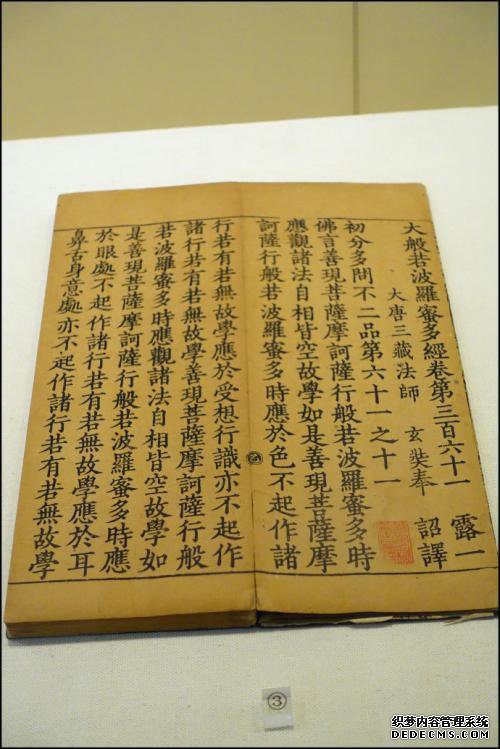 大般若波羅蜜多經卷第三百六十一 露一
大唐三藏法師 玄奘奉 詔譯
初分多問不二品第六十一之十一
佛言善現菩薩摩訶薩行般若波羅蜜多時
應觀諸法自相皆空故學如是善現菩薩摩
訶薩行般若波羅蜜多時應於色不起作諸
行若有若無故學應於受想行識亦不起作
諸行若有若無故學善現菩薩摩訶薩行般
若波羅蜜多時應觀諸法自相皆空故學如
是善現菩薩摩訶薩行般若波羅蜜多時應
於眼處不起作諸行若有若無故學應於耳
鼻舌身意處亦不起作諸行若有若無故學
③
织梦内容管理系统
DEDECMS.COM